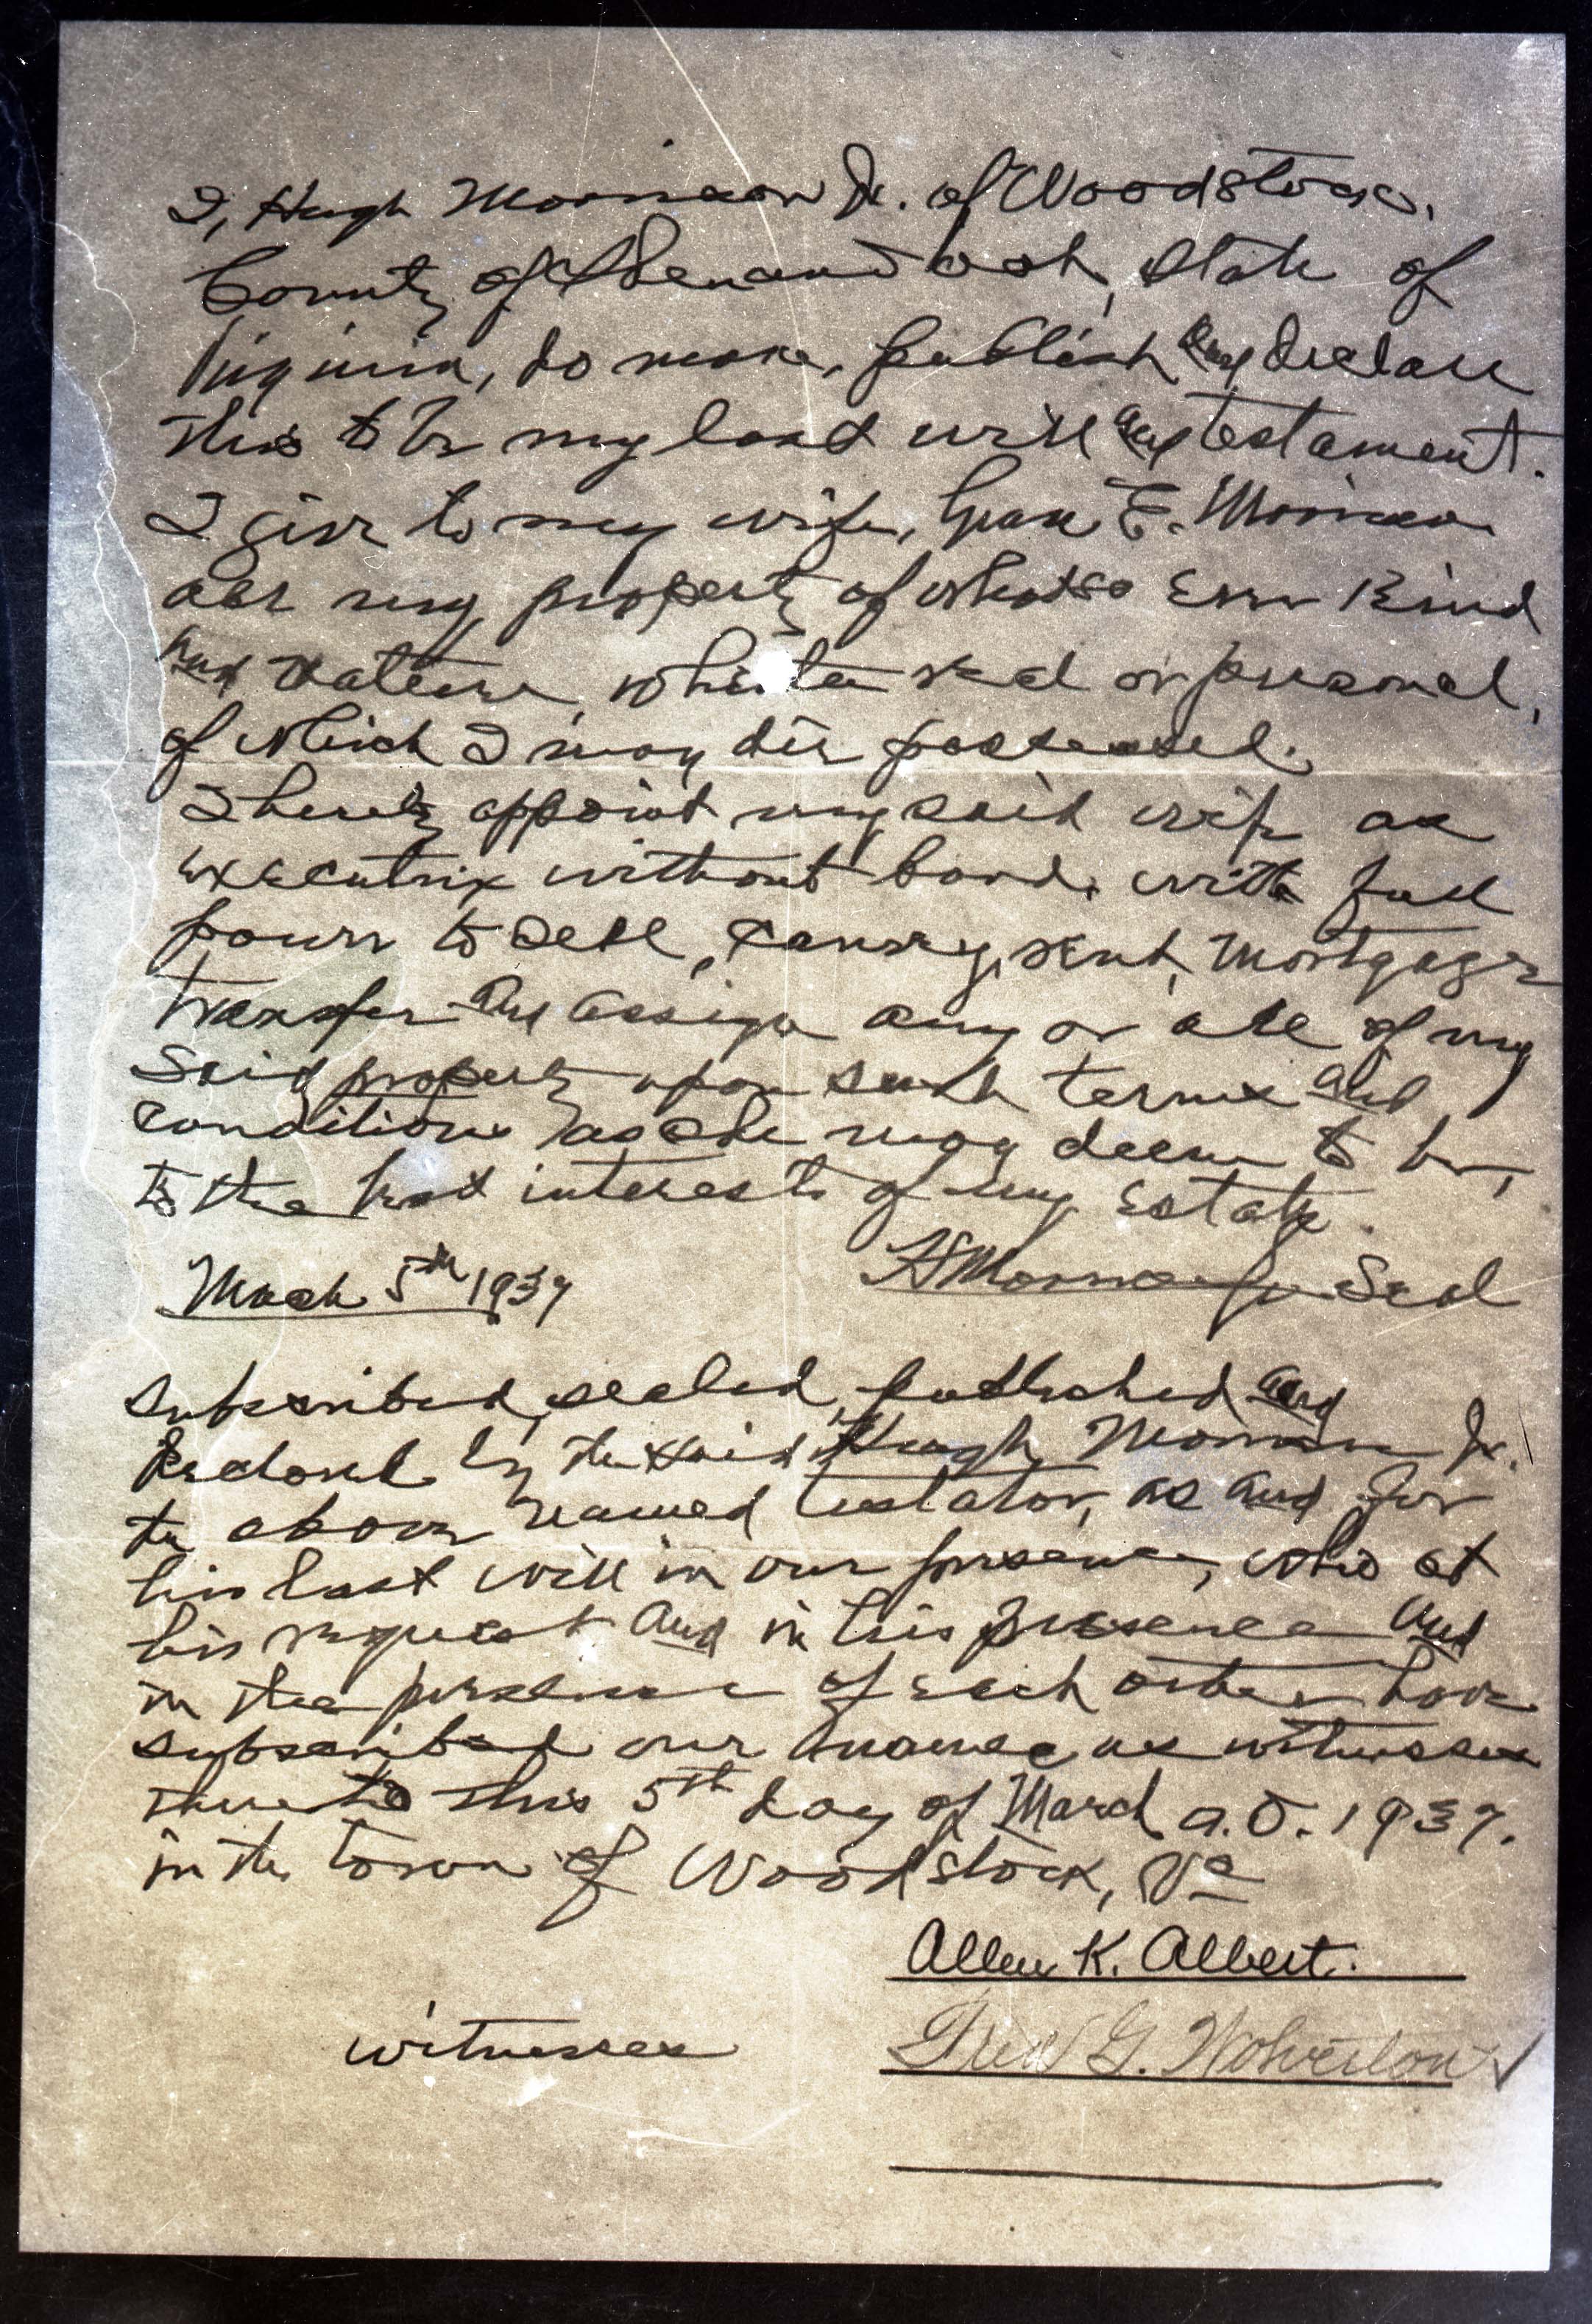 I, Hugh Morrison Jr. of Woodstock,
County of Shenandoah, State of
Virginia, do make, publish and declare
this to be my last will and testament.
I give to my wife, Grace E. Morrison
all my property of whatso ever kind
and nature, whether real or personal,
of which I may die possessed.
I hereby appoint my said wife as
executrix without bond, with full
power to sell, convey, rent, mortgage
transfer and assign any or all of my
said property upon such terms and
conditions as she may deem to be,
to the best interests of my Estate.
March 5th 1937
H Morrison Jr Seal
Subscribed, sealed, published and
declared by the said Hugh Morrison Jr.
the above named testator, as and for
his last will in our presence, who at
his request and in his presence and
in the presence of each other have
subscribed our names as witnesses
thereto this 5th day of March A.D. 1937.
in the town of Woodstock, Va
Allen K. Albert.
witnesses
Fred G. Wolverton